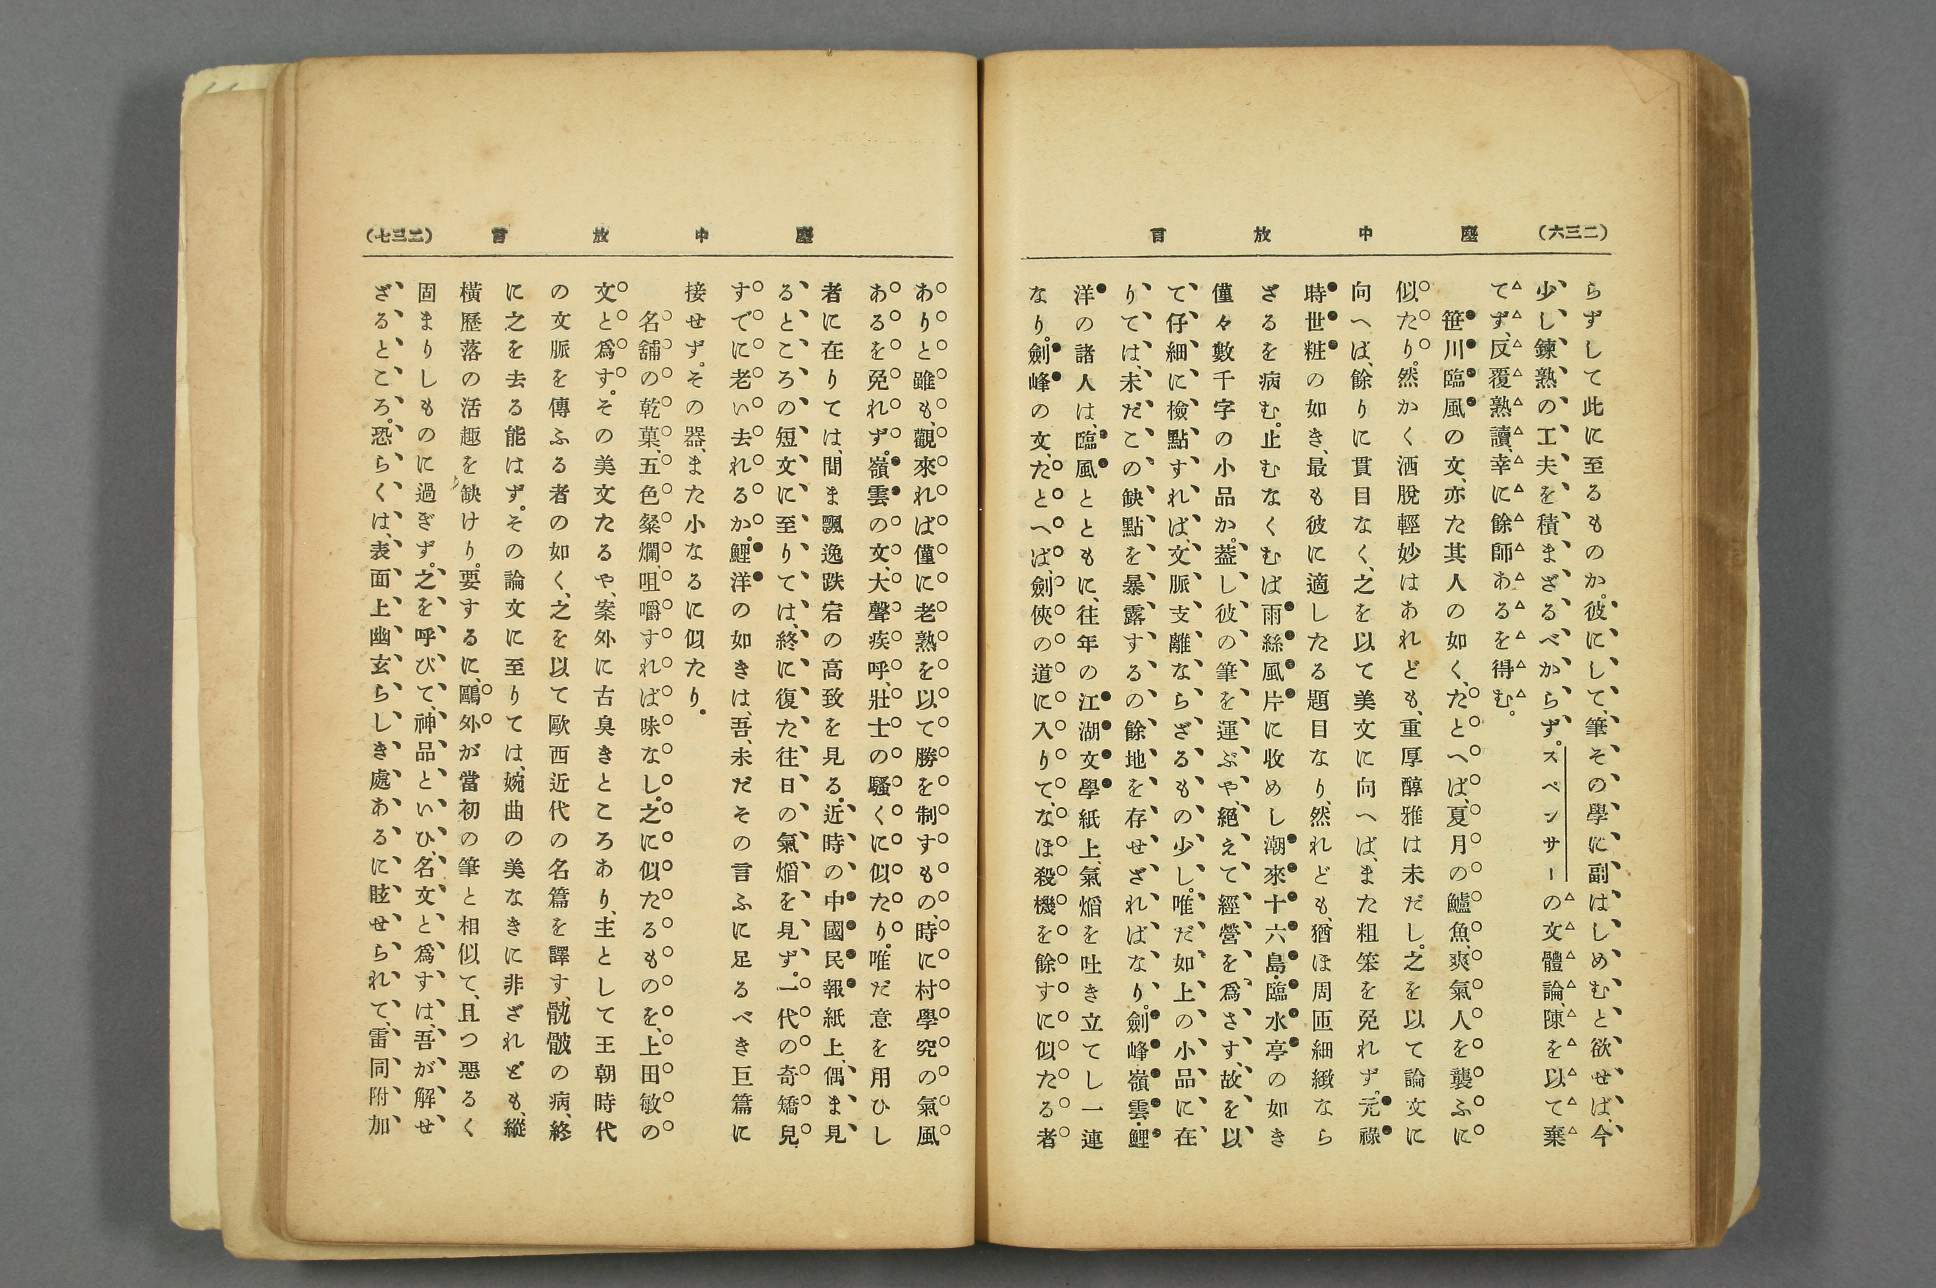 (二三六)
塵中放言
らずして此に至るものか。彼にして、筆その學に副はしめむと欲せば、今
少し鍊熟の工夫を積まざるべからず。スペンサーの文體論、陳を以て棄
てず、反覆熟讀、幸に餘師あるを得む。
笹川臨風の文、亦た其人の如く、たとへば、夏月の鱸魚、爽氣人を襲ふに
似たり。然かく洒脫輕妙はあれども、重厚醇雅は未だし。之を以て論文に
向へば、餘りに貫目なく、之を以て美文に向へば、また粗笨を免れず。元祿
時世粧の如き、最も彼に適したる題目なり、然れども、猶ほ周匝細緻なら
ざるを病む。止むなくむば雨絲風片に收めし潮來十六島・臨水亭の如き
僅々數千字の小品か。蓋し彼の筆を運ぶや、絕えて經營を爲さず、故を以
て仔細に檢點すれば、文脈支離ならざるもの少し。唯だ如上の小品に在
りては、未だこの缺點を暴露するの餘地を存せざればなり。劍峰・嶺雲・鯉
洋の諸人は、臨風とともに、往年の江湖文學紙上、氣焰を吐き立てし一連
なり。劍峰の文、たとへば、劍俠の道に入りて、なほ殺機を餘すに似たる者
塵中放言
(二三七)
ありと雖も、觀來れば僅に老熟を以て勝を制すもの、時に村學究の氣風
あるを免れず。嶺雲の文、大聲疾呼、壯士の騷くに似たり。唯だ意を用ひし
者に在りては、間ま飄逸跌宕の高致を見る。近時の中國民報紙上、偶ま見
るところの短文に至りては、終に復た往日の氣焰を見ず。一代の奇矯兒、
すでに老い去れるか。鯉洋の如きは、吾、未だその言ふに足るべき巨篇に
接せず。その器、また小なるに似たり。
名舖の乾菓、五色粲爛、咀嚼すれば味なし。之に似たるものを、上田敏の
文と爲す。その美文たるや、案外に古臭きところあり、主として王朝時代
の文脈を傳ふる者の如く、之を以て歐西近代の名篇を譯す、骯髒の病、終
に之を去る能はず。その論文に至りては、婉曲の美なきに非ざれども、縱
橫歷落の活趣を缺けり。要するに、鷗外が當初の筆と相似て、且つ惡るく
固まりしものに過ぎず。之を呼びて、神品といひ、名文と爲すは、吾が解せ
ざるところ。恐らくは、表面上幽玄らしき處あるに眩せられて、雷同附加